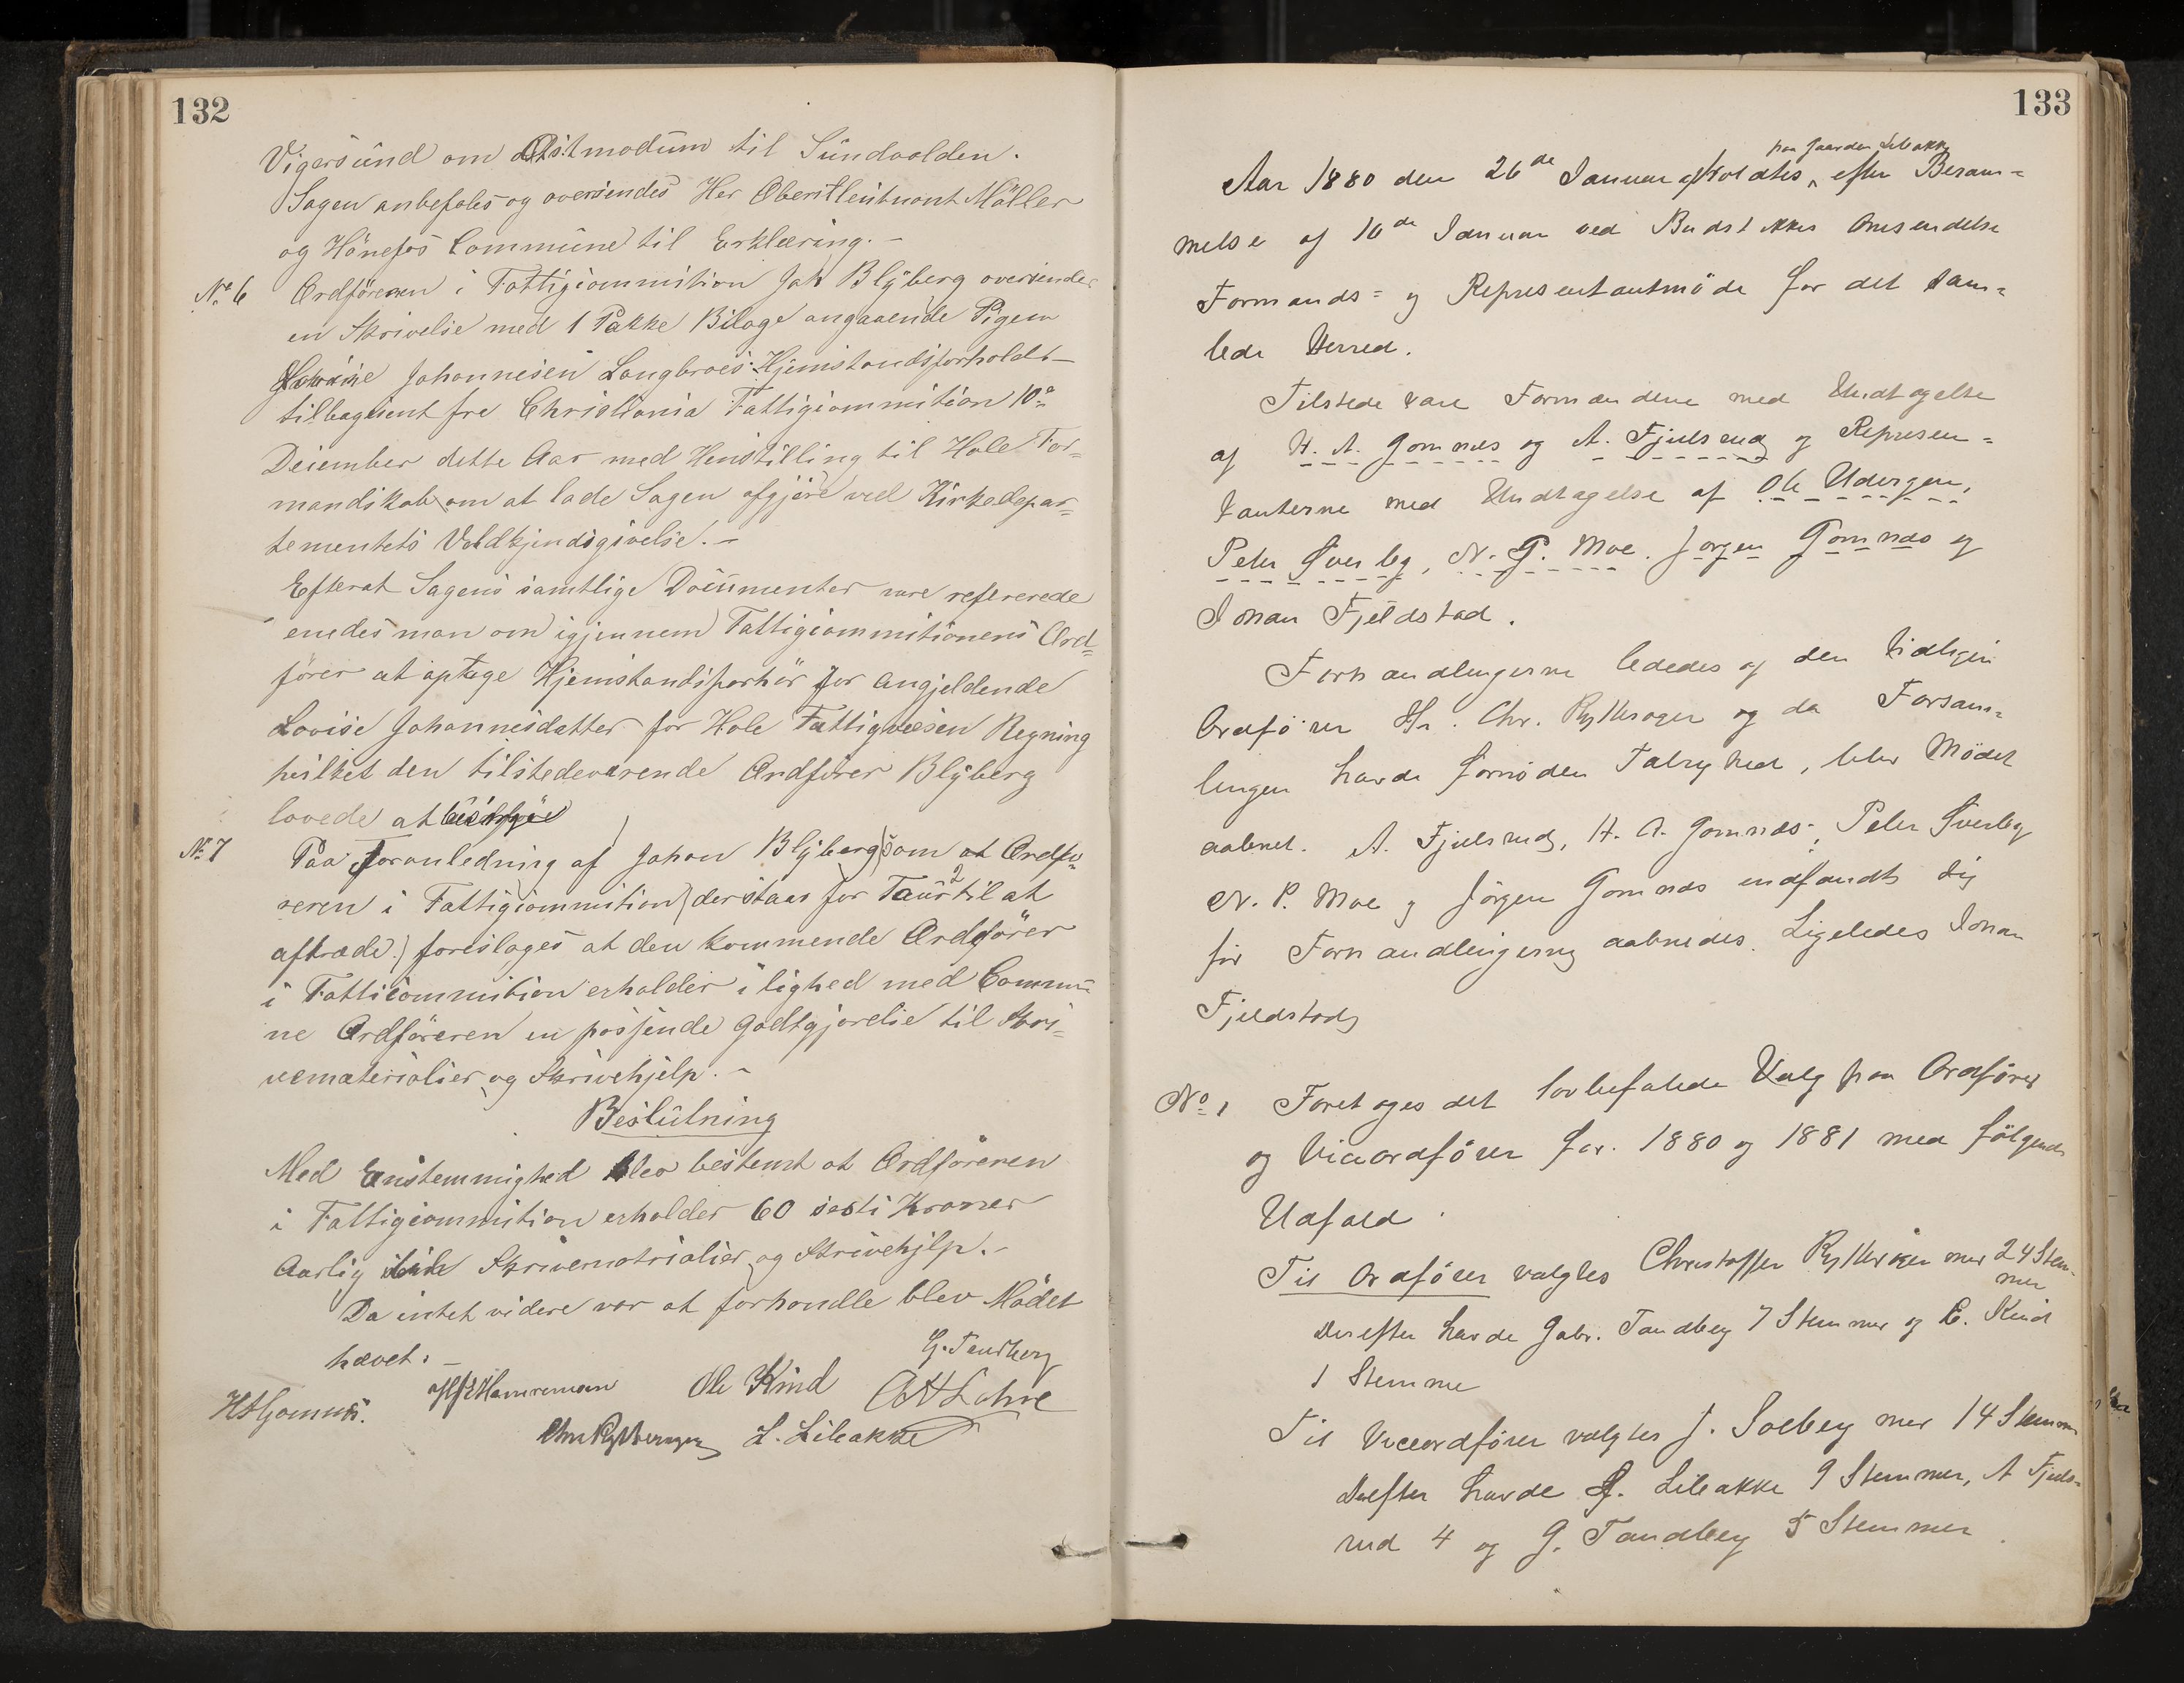 132
Vigersund om Astmodum til Sundvolden.
Sagen anbefales og oversendes Her Oberstleutnant Möller
og Hönefos Commune til Erklæring. –
No 6 Ordföreren i Fattigcommition Joh Blyberg oversender
en Skrivelse med 1 Pakke Bilage angaaende Pigen
Lovise Johannesen Langbraes Hjemstandsforholdt
tilbagsent fra Christiania Fattigcommition 10de
December dette Aar med Henstilling til Hole For=
mandskab om at lade Sagen afgjöre ved Kirkedepar=
tementets Voldkjendsgivelse. –
Efterat Sagens samtlige Documenter vare refererede
enedes man om igjennem Fattigcommitionens Ord=
förer at optage Hjemstandsforhör for angjeldende
Lovise Johannesdatter for Hole Fattigvæsen Regning
hvilket den tilstedeværende Ordförer Blyberg
lovede at besörge
No 7 Paa Foranledning af Johan Blyberg (som at Ordfö=
reren i Fattigcommition) der staar for Tour 2 til at
aftræde) foreslages at den kommende Ordförer
i Fatticommition erholder i lighed med Commu=
ne Ordföreren en passende Godtgjørelse til Skri=
vematerialier og Skrivehjelp. –
Beslutning
Med Enstemmighed blev bestemt at Ordföreren
i Fattigcommition erholder 60 sexti Kroner
Aarlig til Skrivematrialier og Skrivehjelp. –
Da intet videre var at forhandle blev Mödet
hævet. –
G. Tandberg
HAGomnæs. Hamremoen Ole Kind AHLohre
Chr Rytterager L. Libakke
133
paa Gaarden Libakke
Aar 1880 den 26de Januar afholdtes efter Beram=
melse af 10de Januar ved Budstikkes Omsendelse
Formands= og Representantmöde for det sam=
lede Herred.
Tilstede vare Formændene med Undtagelse
af H. A. Gomnæs og A. Fjulsrud og Represen=
tanterne med Undtagelse af Ole Udergen,
Peter Sverby, N. P. Moe. Jorgen Gomnæs og
Johan Fjeldstad.
Forhandlingerne lededes af den tidligere
Ordförer Hr. Chr. Rytterager og da Forsam=
lingen havde fornöden Talrighed, blev Mödet
aabnet. A. Fjulsrud, H. A. Gomnæs, Peter Sverby
N. P. Moe og Jörgen Gomnæs indfandt sig
för Forhandlingerne aabnedes. Ligeledes Johan
Fjeldstad
No 1 Foretoges det lovbefalede Valg paa Ordförer
og Viceordförer for 1880 og 1881 med fölgende
Udfald.
Til Ordförer valgtes Christoffer Rytterager med 24 Stem=
mer
Derefter havde Gabr. Tandberg 7 Stemmer og O. Kind
1 Stemme
Til Viceordförer valgtes J. Solberg med 14 Stemmer
Derefter havde L. Libakke 9 Stemmer, A Fjuls=
rud 4 og G. Tandberg 5 Stemmer.